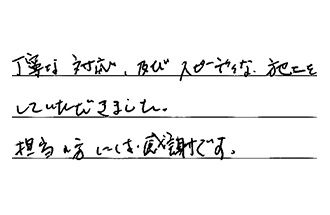 丁寧な対応、及びスピーディな施工を
していただきました。
担当の方には感謝です。